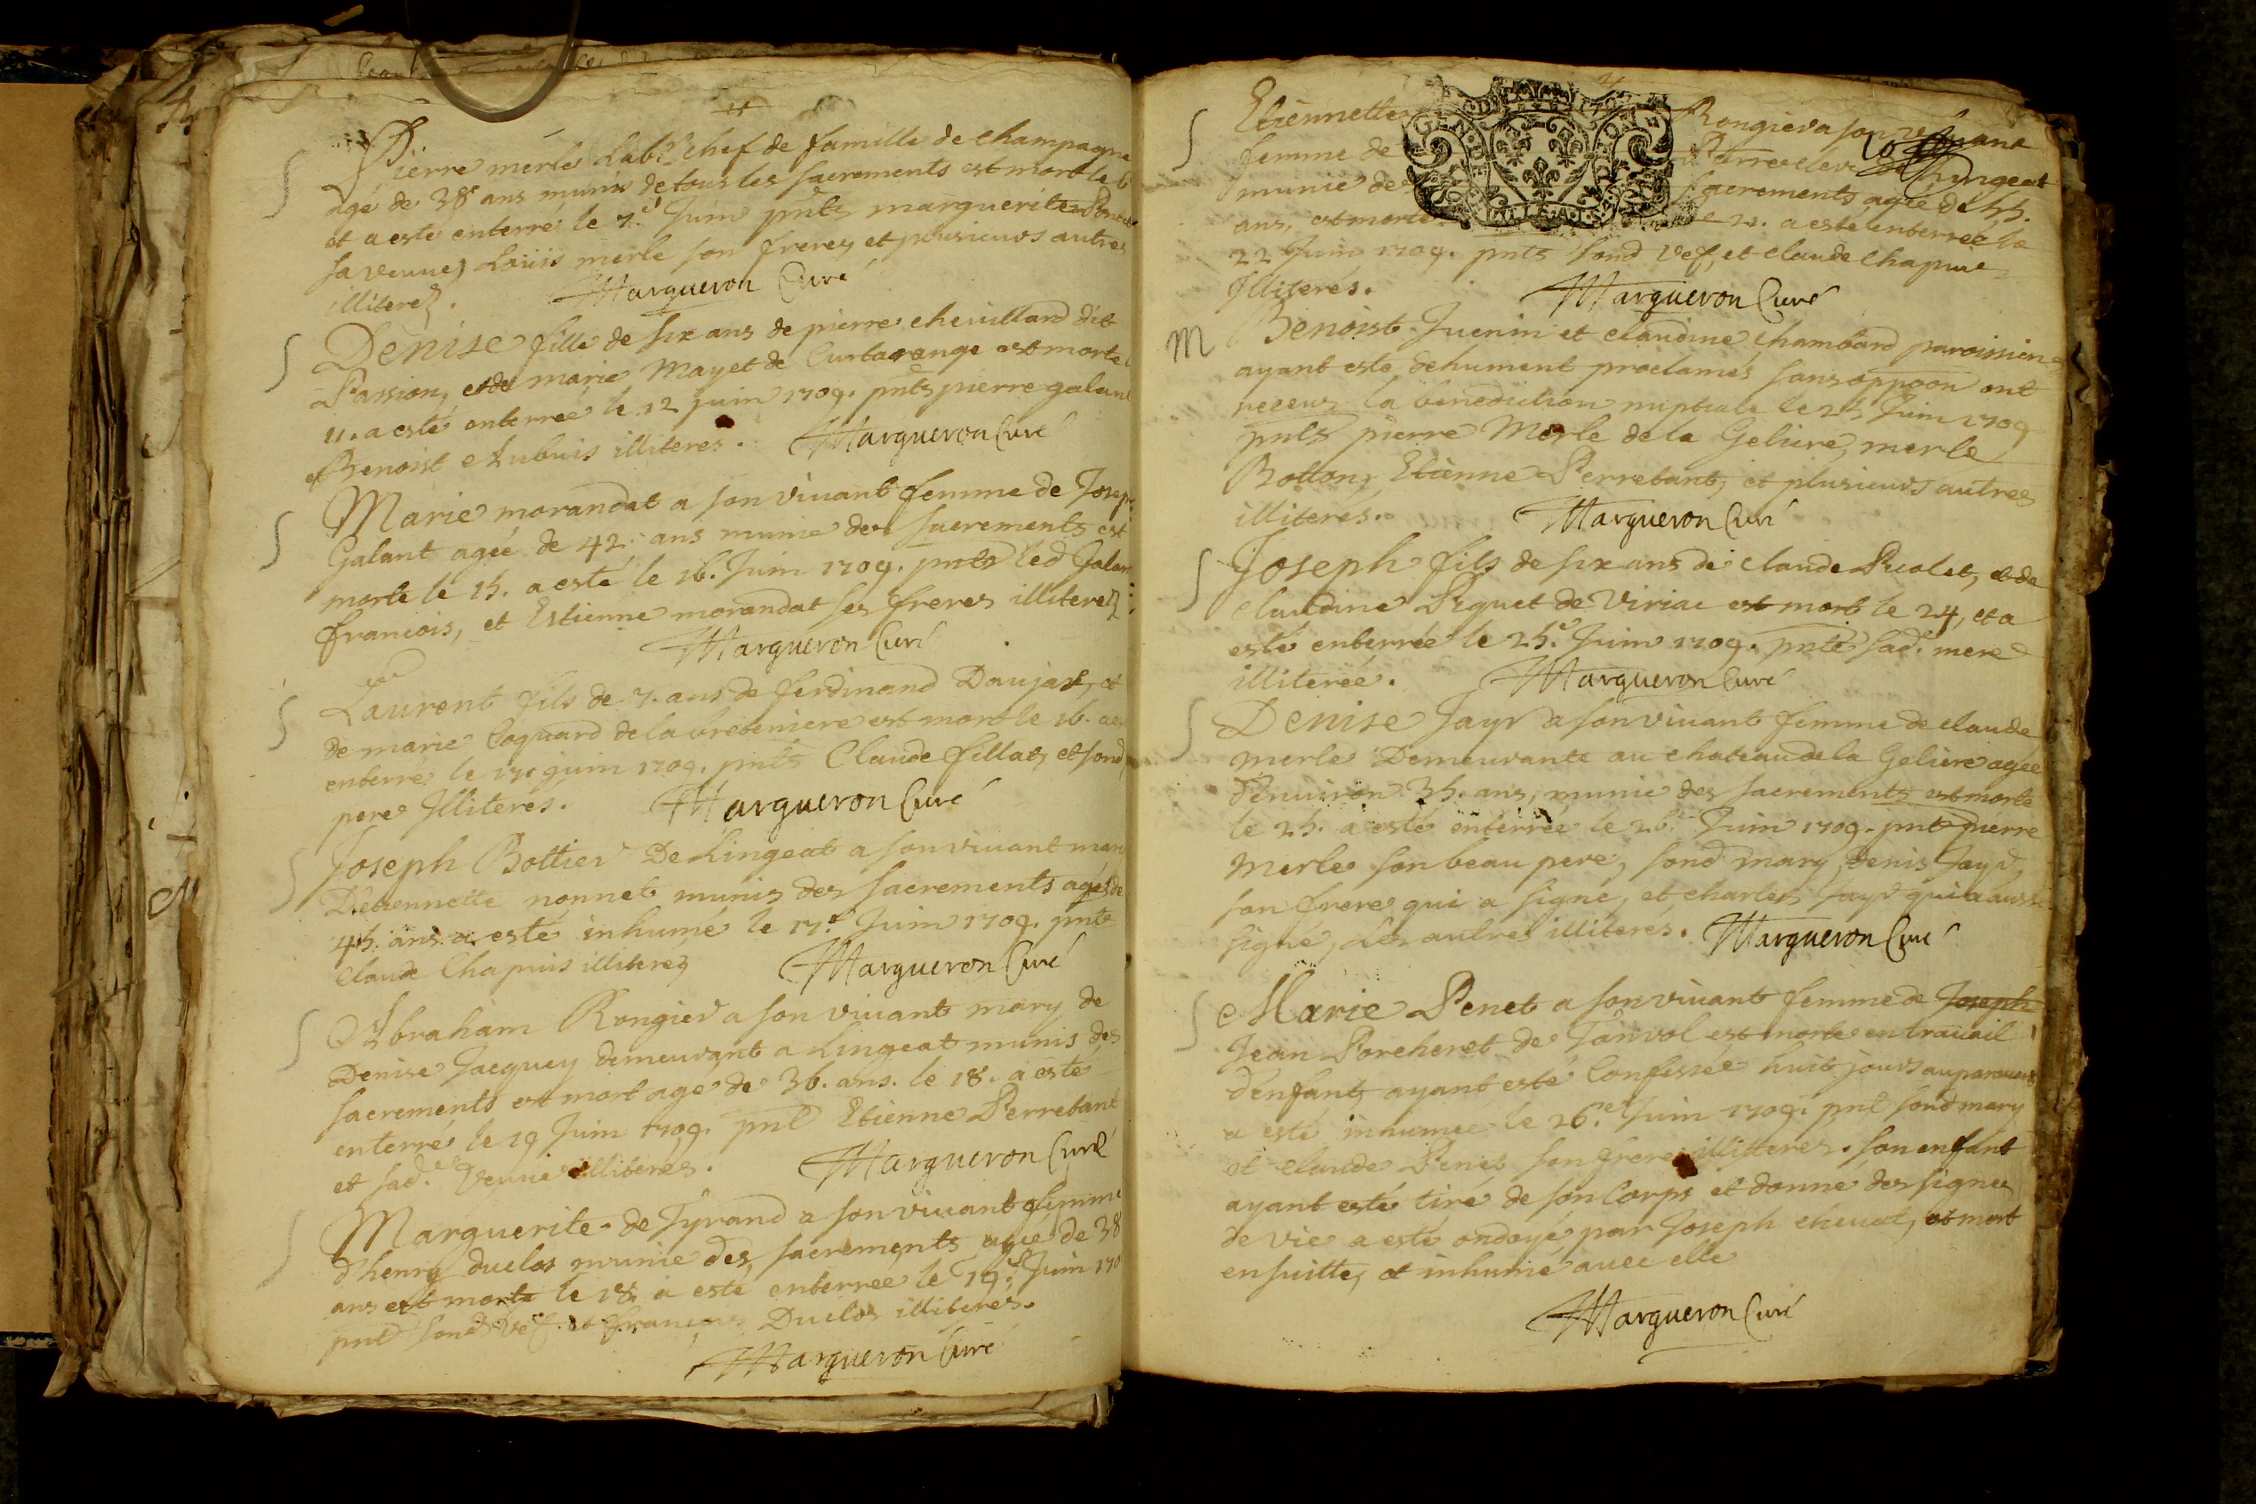 Pierre merle Lab.r chef de famille de champagne
agé de 38 ans munis de tous les sacrements est mort le 6
et a esté enterré le 7.e Juin pnts marguerite
sa veuve, Loüis merle son frere, et plusieurs autres
illiterez. Margueron Curé
Denise fille de six ans de pierre chevilland dit
Passion, et de marie Mayet de Curtarange est morte
11. a esté enterrée le 12 juin 1709. pnts pierre galant
et Benoist illiteres. Margueron Curé
Marie morandat a son vivant femme de Josep
Galant agée de 42. ans munie des sacrements est
morte le 15. a esté le 16. Juin 1709. pnts led Galan
francois, et Estienne morandat ses freres illiterez
Margueron Curé
Laurent fils de 7. ans de ferdinand Daujat, et
de marie Coquard de la breteniere est mort le 16. a
enterré le 17. juin 1709. pnts Claude fillat, et sond
pere Illiterés. Margueron Curé
Joseph Bottier De Lingeat a son vivant mary
D'etiennette nonnet munis des sacrements agé de
45. ans a esté inhumé le 17.e Juin 1709. pnts
Claude Chapuis illiterez Margueron Curé
Abraham Rongier a son vivant mary de
Denise Jacquey demeurant a Lingeat munis des
sacrements est mort age de 36. ans. le 18. a esté
enterré le 19 Juin 1709. pnt Etienne Perretant
et sad. veuve illiteres. Margueron Curé
Marguerite de Tyrand a son vivant femme
d'henry duclos munie des sacrements agée de 38
ans est morte le 18. a esté enterrée le 19.e Juin 170
pnts sond vef. et françois Duclos illiterés.
Margueron Curé
Etiennette Rongier a son vivant
femme de Pierre Lingeat
munie des sacrements agée de 55.
ans, est morte le 21. a esté enterrée le
22 Juin 1709. pnts sond vef, et claude Chapuis
Illiterés. Margueron Curé
M Benoist Juenin et claudine Chambard paroissiens
ayant esté dehument proclamés sans oppoon ont
receus la benediction nuptiale le 25 Juin 1709
pnts pierre Merle de la Geliere, merle
Botton, Etienne Perretant, et plusieurs autres
illiterés. Margueron Curé
Joseph fils de six ans de claude Picolet, et de
claudine Piguet de Viriac est mort le 24, et a
esté enterrée le 25.e Juin 1709. pnte sad. mere
illiterée. Margueron Curé
Denise Jayr a son vivant femme de claude
merle Demeurante au chateau de la Geliere agée
d'environ 35. ans, munie des sacrements est morte
le 25. a esté enterrée le 26. Juin 1709. pnt pierre
Merle son beau pere, sond mary, denis Jayr,
son frere qui a signé, et charles Jayr qui a aussi
signé, les autres illiterés. Margueron Curé
Marie Penet a son vivant femme de Joseph
Jean Porcheret de Tanvol est morte en travail
d'enfant, ayant esté Confessée huit jours auparavant
a esté inhumée le 26.e Juin 1709. pnt sond mary
et claude Penet son frere illitteres. son enfant
ayant esté tiré de son Corps et donne des signes
de vie a esté ondoyé par Joseph chevat, est mort
ensuitte, et inhumé avec elle
Margueron Curé